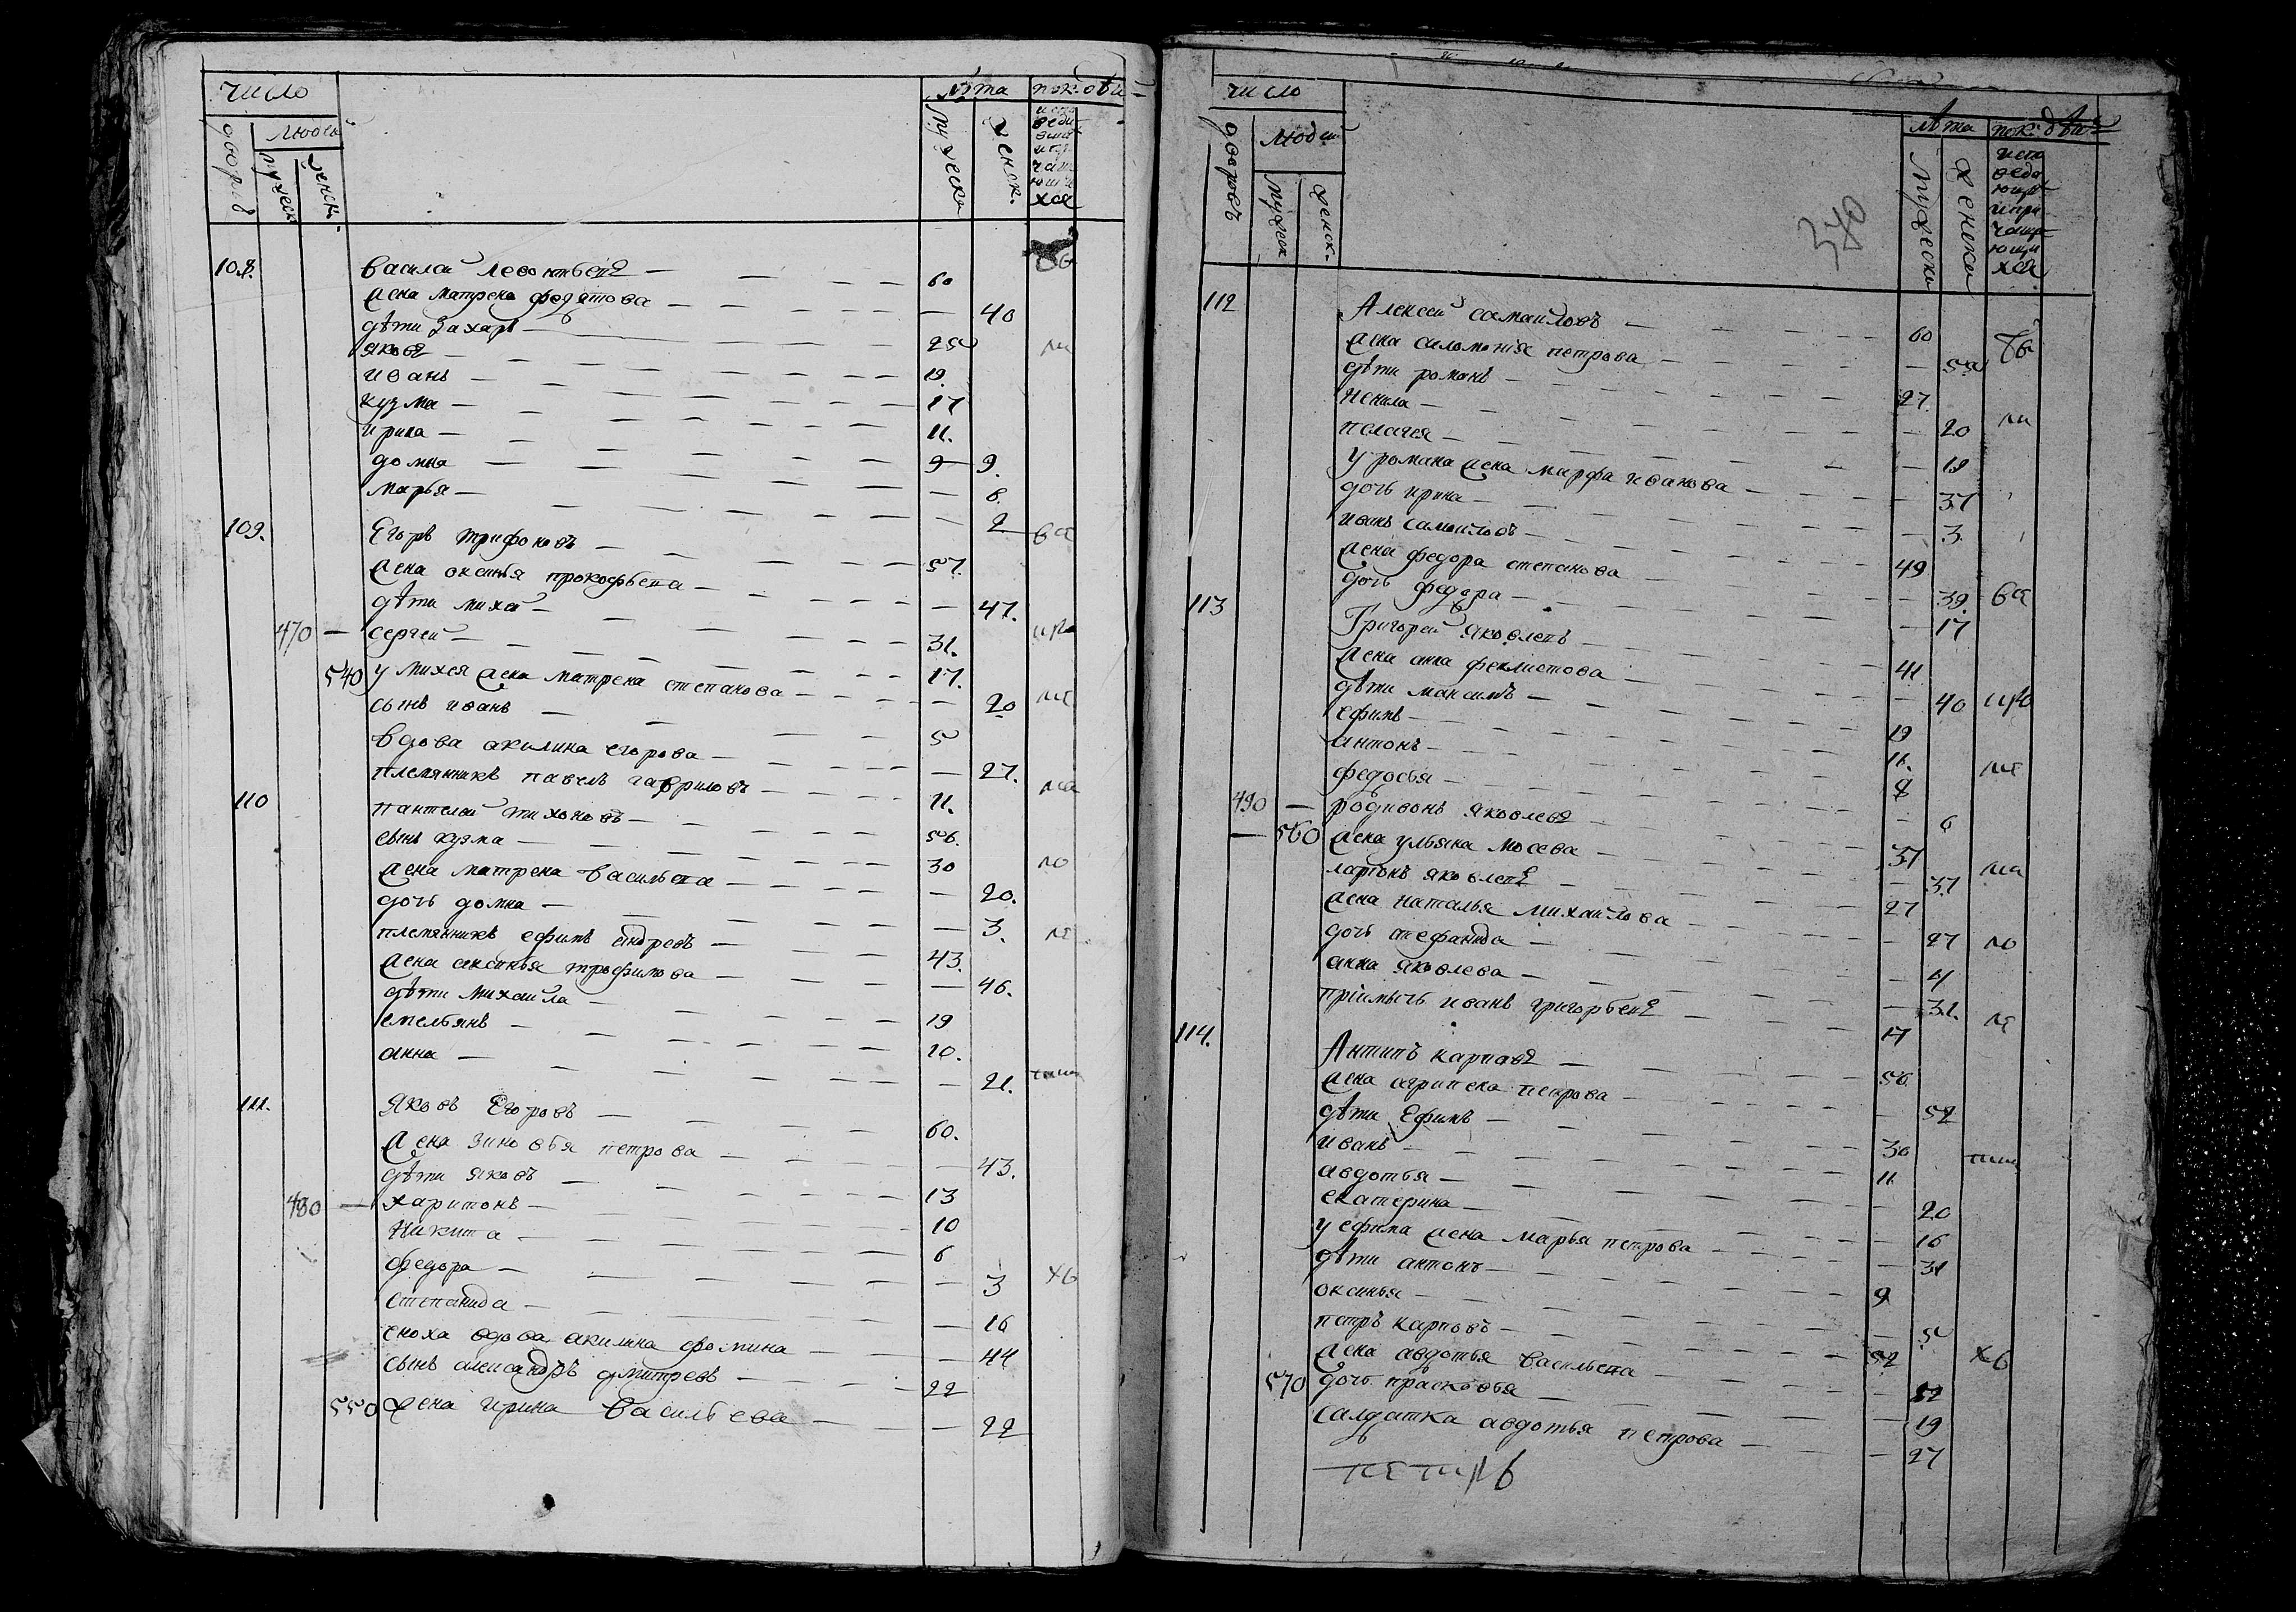 число
лѣта
дворовъ
людей
мужеск
женск.
мужеска
женск.
108.
василей леонтьевъ — 60
жена матрена федотова — 40
дѣти захаръ — 25
яковъ — 19.
иванъ — 17
кузма — 11.
ирина — 9 — 9.
домна — 8.
марья — 2
109.
Егоръ трифоновъ — 57.
жена оксинья прокофьева — 47.
дѣти михей — 31.
470 — сергей — 17.
540 у михея жена матрена степанова — 20
сынъ иванъ — 5
вдова акилина егорова — 27.
племянникъ павелъ гавриловъ — 11.
110
пантелей тихоновъ — 56.
сынъ кузма — 30
жена матрена васильева — 20.
дочь домна — 3.
племянникъ ефимъ андревъ — 43.
жена аксинья трофимова — 46.
дѣти михаила — 19
емельянъ — 10.
анна — 21.
111.
яковъ Егоровъ — 60.
жена зиновья петрова — 43.
дѣти яковъ — 13
480 — харитонъ — 10
никита — 6
федора — 3
степанида — 16
сноха вдова акилина фомина — 44
сынъ александръ дмитревъ — 22
550 жена ирина васильева — 22
число
лѣта
дворовъ
людей
мужеск
женск.
мужеска
женска
испо
веда
ющи
и при
чаща
ющи
хся
340
112
Алексей самаиловъ — 60
жена саломонія петрова — 50
дѣти романъ — 27.
ненила — 20
пелагея — 19
у романа жена марфа иванова — 37
дочь ирина — 3
иванъ самоиловъ — 49
жена федора степанова — 39.
дочь федора — 17
113
Григорей яковлевъ — 41
жена анна феклистова — 40
дѣти максимъ — 19
ефимъ — 16.
антонъ — 8
федосья — 6
490 — родивонъ яковлевъ — 37
— 560 жена ульяна мосева — 37
ларионъ яковлевъ — 27
жена наталья михаилова — 27
дочь стефанида — 4
анна яковлева — 31.
пріимышъ иванъ григорьевъ — 17
114.
Антипъ карповъ — 56
жена агрипена петрова — 52
дѣти Ефимъ — 30
иванъ — 11
авдотья — 20
екатерина — 16
у ефима жена марья петрова — 31
дѣти антонъ — 9
оксинья — 5
петръ карповъ — 52
жена авдотья васильева — 52
570 дочь прасковья — 19
салдатка авдотья петрова — 27